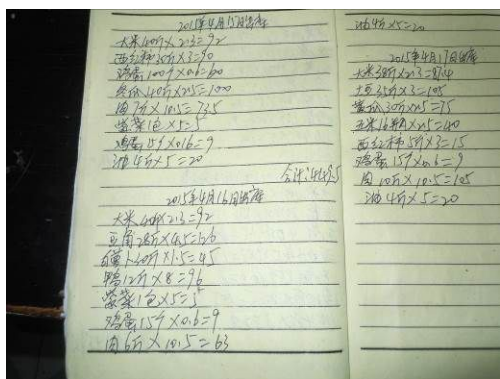 2015年4月15日出库
大米40斤×2.3=92
西红柿30斤×3=90
鸡蛋100个×0.6=60
冬瓜40斤×2.5=100
肉7斤×10.5=73.5
紫菜1包×5=5
鸡蛋15个×0.6=9
油4斤×5=20
合计:449.5
2015年4月16日出库
大米40斤×2.3=92
豆角28斤×4.5=126
白萝卜30斤×1.5=45
鸭12斤×8=96
紫菜1包×5=5
鸡蛋15个×0.6=9
肉6斤×10.5=63
油4斤×5=20
2015年4月17日出库
大米38斤×2.3=87.4
土豆35斤×3=105
黄瓜30斤×2.5=75
玉米16斤×2.5=40
西红柿5斤×3=15
鸡蛋15个×0.6=9
肉10斤×10.5=105
油4斤×5=20